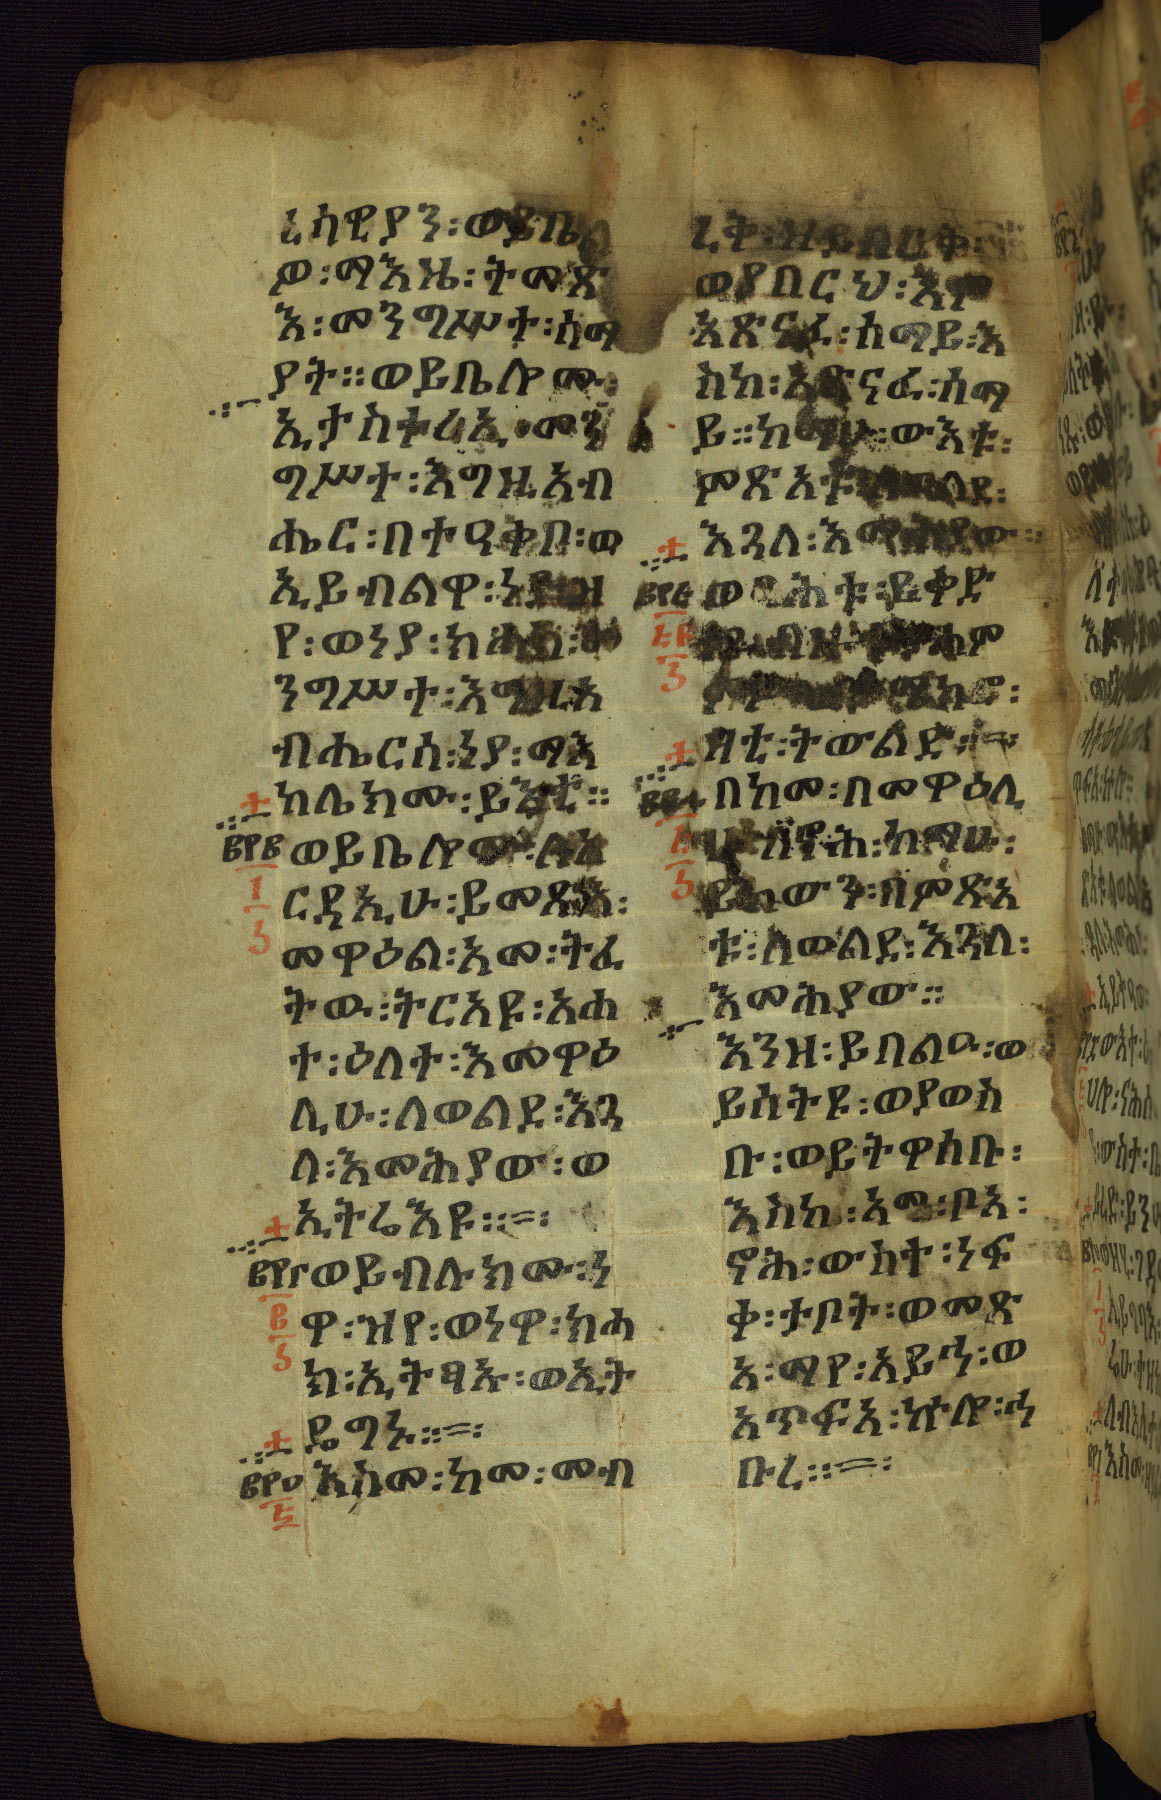 ሪሳዊያን፡ወይቤል
ዎ፡ማእዜ፡ትመጽ
እ፡መንግሥተ፡ሰማ
ያት፡፡ወይቤሎሙ፡
ኢታስተሬኢ፡መን
ግሥተ፡እግዚአብ
ሔር፡በተዓቅቦ፡ወ
ኢይብልዋ፡ነያ፡ዝ
የ፡ወነያ፡ክሐክ፡መ
ንግሥተ፡እግዚአ
ብሔርሰ፡ነያ፡ማእ
ከሌክሙ፡ይእቲ፡፡
ወይቤሎሙ፡ለአ
ርዳኢሁ፡ይመጽእ፡
መዋዕል፡አመ፡ትፈ
ትዉ፡ትርአዩ፡አሐ
ተ፡ዕለተ፡እመዋዕ
ሊሁ፡ለወልደ፡እጓ
ለ፡እመሕያው፡ወ
ኢትሬእዩ፡፡=፡
ወይብሉክሙ፡ነ
ዋ፡ዝየ፡ወነዋ፡ክሓ
ክ፡ኢትፃኡ፡ወኢት
ዴግኑ፡፡=፡
እስመ፡ከመ፡መብ
ረቅ፡ዘይበርቅ፡
ወያበርህ፡እም
አጽናፈ፡ሰማይ፡እ
ስከ፡አጽናፈ፡ሰማ
ይ፡፡ከማሁ፡ውእቱ፡
ምጽአቱ፡ለወልደ፡
እጓለ፡እመሕያው፡፡
ወባሕቱ፡ይቀድ
ዛቲ፡ትውልድ፡፡=፡
በከመ፡በመዋዕሊ
ሁ፡ለኖሕ፡ከማሁ፡
ይከውን፡በምጽአ
ቱ፡ለወልደ፡እጓለ፡
እመሕያው፡፡
እንዘ፡ይበልዑ፡ወ
ይሰትዩ፡ወያወስ
ቡ፡ወይትዋሰቡ፡
እስከ፡አመ፡ቦአ፡
ኖሕ፡ውስተ፡ነፍ
ቀ፡ታቦት፡ወመጽ
አ፡ማየ፡አይኅ፡ወ
አጥፍአ፡ኵሎ፡ኅ
ቡረ፡፡=፡